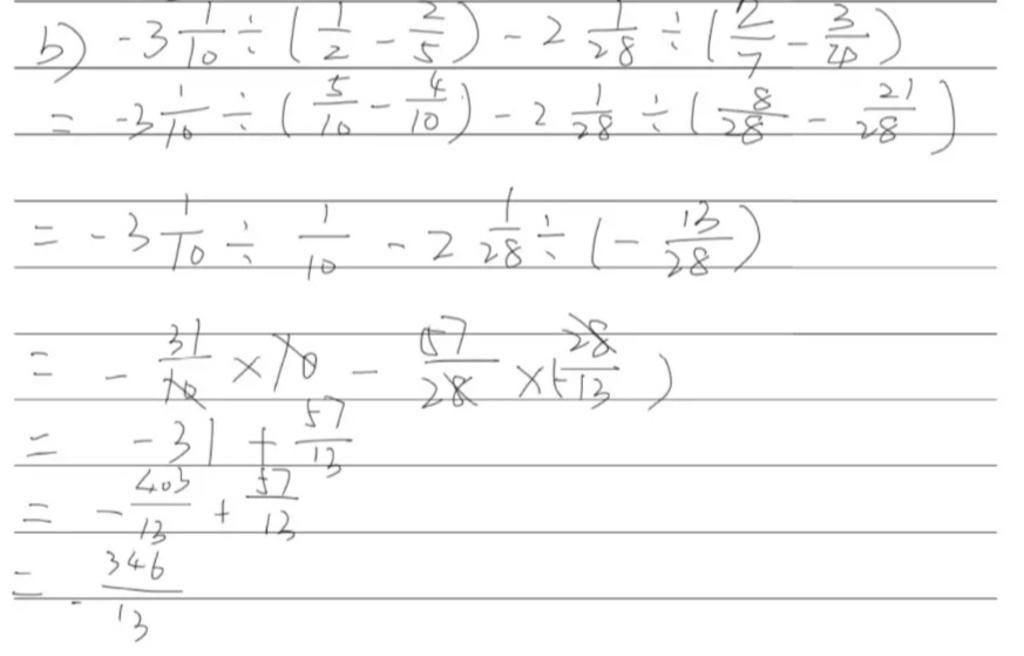 b) -3 1/10 ÷ (1/2 - 2/5) - 2 1/28 ÷ (2/7 - 3/4)
= -3 1/10 ÷ (5/10 - 4/10) - 2 1/28 ÷ (8/28 - 21/28)
= -3 1/10 ÷ 1/10 - 2 1/28 ÷ (- 13/28)
= - 31/10 × 10 - 57/28 × (- 28/13)
= -31 + 57/13
= - 403/13 + 57/13
= - 346/13